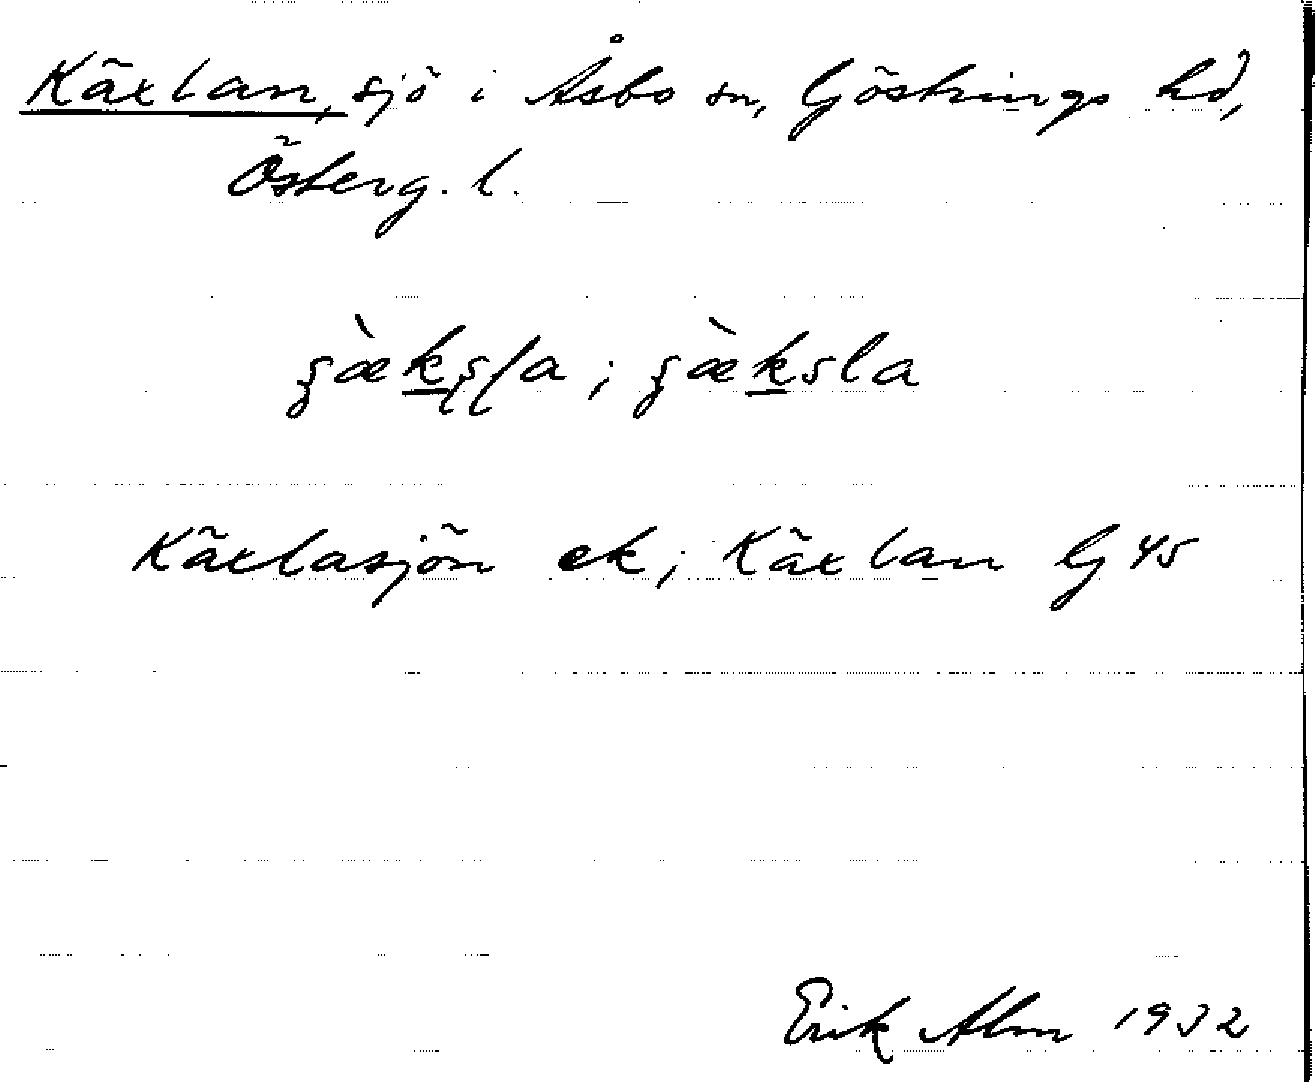 Käxlan, sjö i Åsbo sn, Göstrings hd,
Österg. l.
ʂæ̀k̲sla ; ʂæ̀k̲sla
Käxlasjön ek; Käxlan G 45
Erik Alm 1932